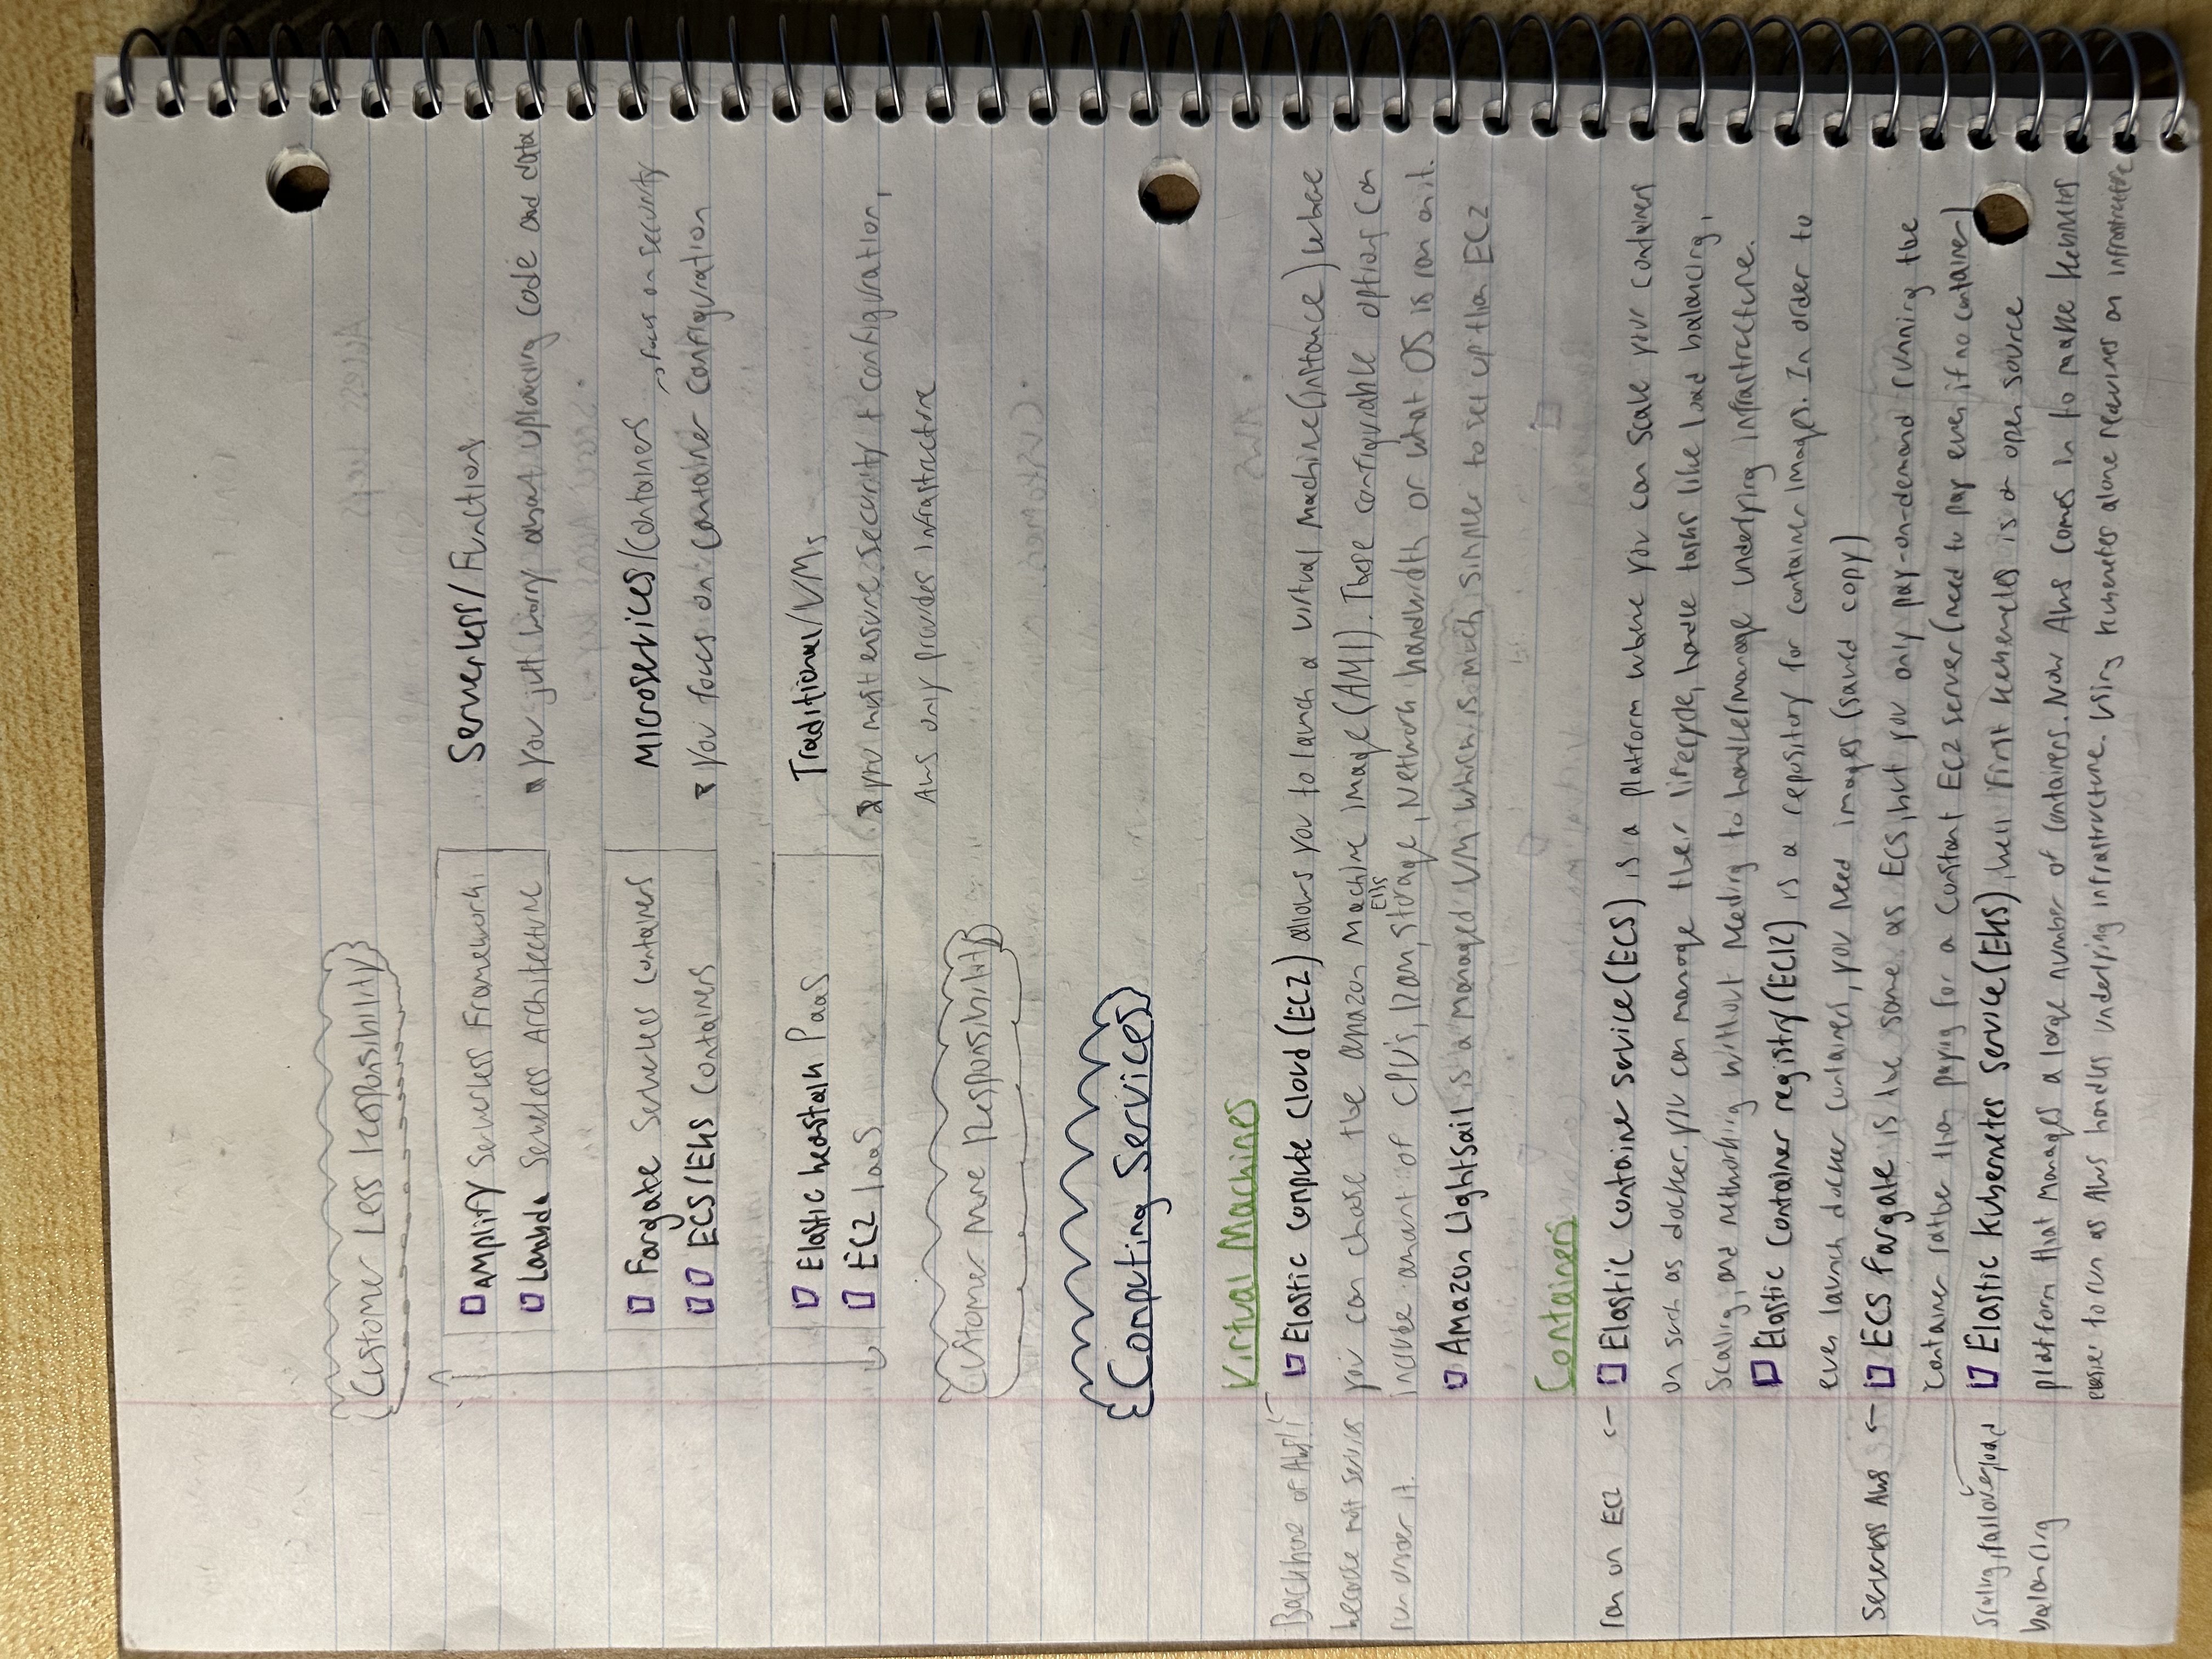 Customer Less Responsibility
Amplify Serverless Framework
Lambda Serveless Architecture
Serverless/Functions
You just worry about uploading code and data
Fargate Serverless Containers
ECS/EKS Containers
Microservices/Containers
focus on security
You focus on container configuration
Elastic beanstalk PaaS
EC2 IaaS
Traditional/VMs
you must ensure security + configuration,
AWS only provides infrastructure
Customer More Responsibility
Computing Services
Virtual Machines
Backbone of AWS!
because most services
run under it.
Elastic Compute Cloud (EC2) allows you to launch a virtual machine (instance) where
you can chose the amazon machine image (AMI). These configurable options can
EBS
include amount of CPU's, Ram, Storage, Network bandwidth or what OS is ran on it.
Amazon LightSail is a managed VM which is much simpler to set up than EC2
Containers
ran on EC2
Elastic container service (ECS) is a platform where you can scale your containers
on such as docker. you can manage their lifecycle, handle tasks like load balancing,
scaling, and networking without needing to handle/manage underlying infrastructure.
Elastic Container registry (ECR) is a repository for container images. In order to
even launch docker containers, you need images (saved copy)
Serverless AWS
ECS Fargate is the same as ECS, but you only pay-on-demand running the
container rather than paying for a constant EC2 server (need to pay even if no container)
Scaling, failover, load
balancing
Elastic Kubernetes Service (EKS), well first Kubernetes is an open source
platform that manages a large number of containers. Now AWS comes in to make
easier to run as AWS handles underlying infrastructure. Using Kubernetes alone requires an infrastructure